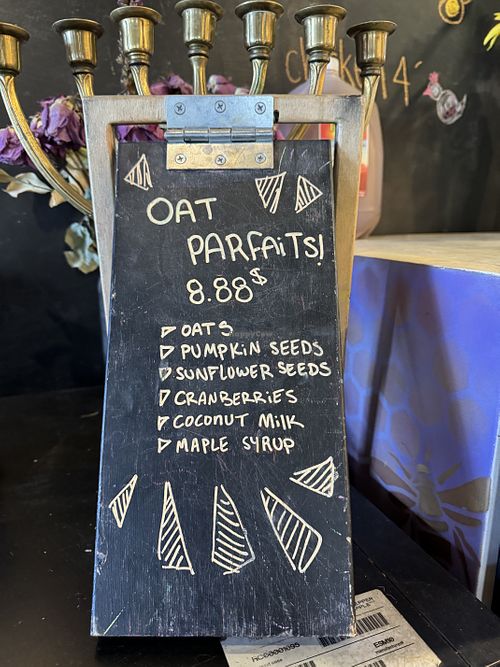 chicken 4
OAT
PARFAiTS!
8.88$
OATS
PUMPKiN SEEDS
SUNFLOWER SEEDS
CRANBERRiES
COCONUT MiLK
MAPLE SYRUP
HC6001095
ESM90